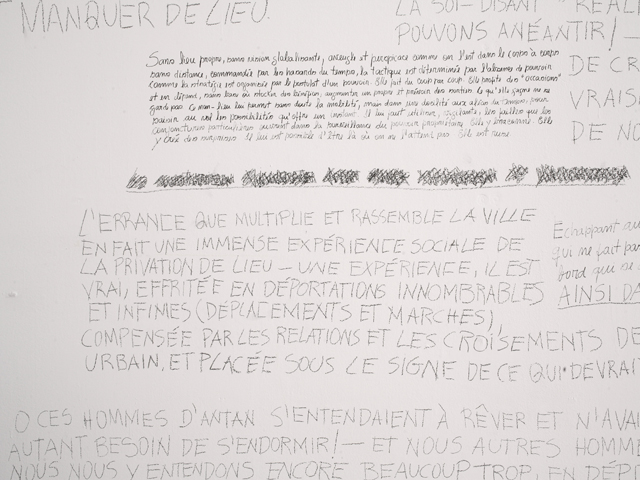 MANQUER DE LIEU.
LA SOI-DISANT "RÉAL
POUVONS ANÉANTIR! —
DE CR
VRAIS
DE NO
Sans lieu propre, sans vision globalisante, aveugle et perspicace comme on l'est dans le corps à corps
sans distance, commandée par les hasards du temps, la tactique est déterminée par l'absence de pouvoir
comme la stratégie est organisée par le postulat d'un pouvoir. Elle fait du coup par coup. Elle profite des "occasions"
et en dépend, sans base où stocker des bénéfices, augmenter un propre et prévoir des sorties. Ce qu'elle gagne ne se
garde pas. Ce non-lieu lui permet sans doute la mobilité, mais dans une docilité aux aléas du temps, pour
saisir au vol les possibilités qu'offre un instant. Il lui faut utiliser, vigilante, les failles que les
conjonctures particulières ouvrent dans la surveillance du pouvoir propriétaire. Elle y braconne. Elle
y crée des surprises. Il lui est possible d'être là où on ne l'attend pas. Elle est ruse
L'ERRANCE QUE MULTIPLIE ET RASSEMBLE LA VILLE
EN FAIT UNE IMMENSE EXPÉRIENCE SOCIALE DE
LA PRIVATION DE LIEU — UNE EXPÉRIENCE, IL EST
VRAI, EFFRITÉE EN DÉPORTATIONS INNOMBRABLES
ET INFIMES (DÉPLACEMENTS ET MARCHES),
COMPENSÉE PAR LES RELATIONS ET LES CROISEMENTS DE
URBAIN, ET PLACÉE SOUS LE SIGNE DE CE QUI DEVRAIT
Échappant au
qui ne fact pas
bord qui se
AINSI DA
O CES HOMMES D'ANTAN S'ENTENDAIENT À RÊVER ET N'AVAI
AUTANT BESOIN DE S'ENDORMIR! — ET NOUS AUTRES HOMME
NOUS NOUS Y ENTENDONS ENCORE BEAUCOUP TROP, EN DÉPI